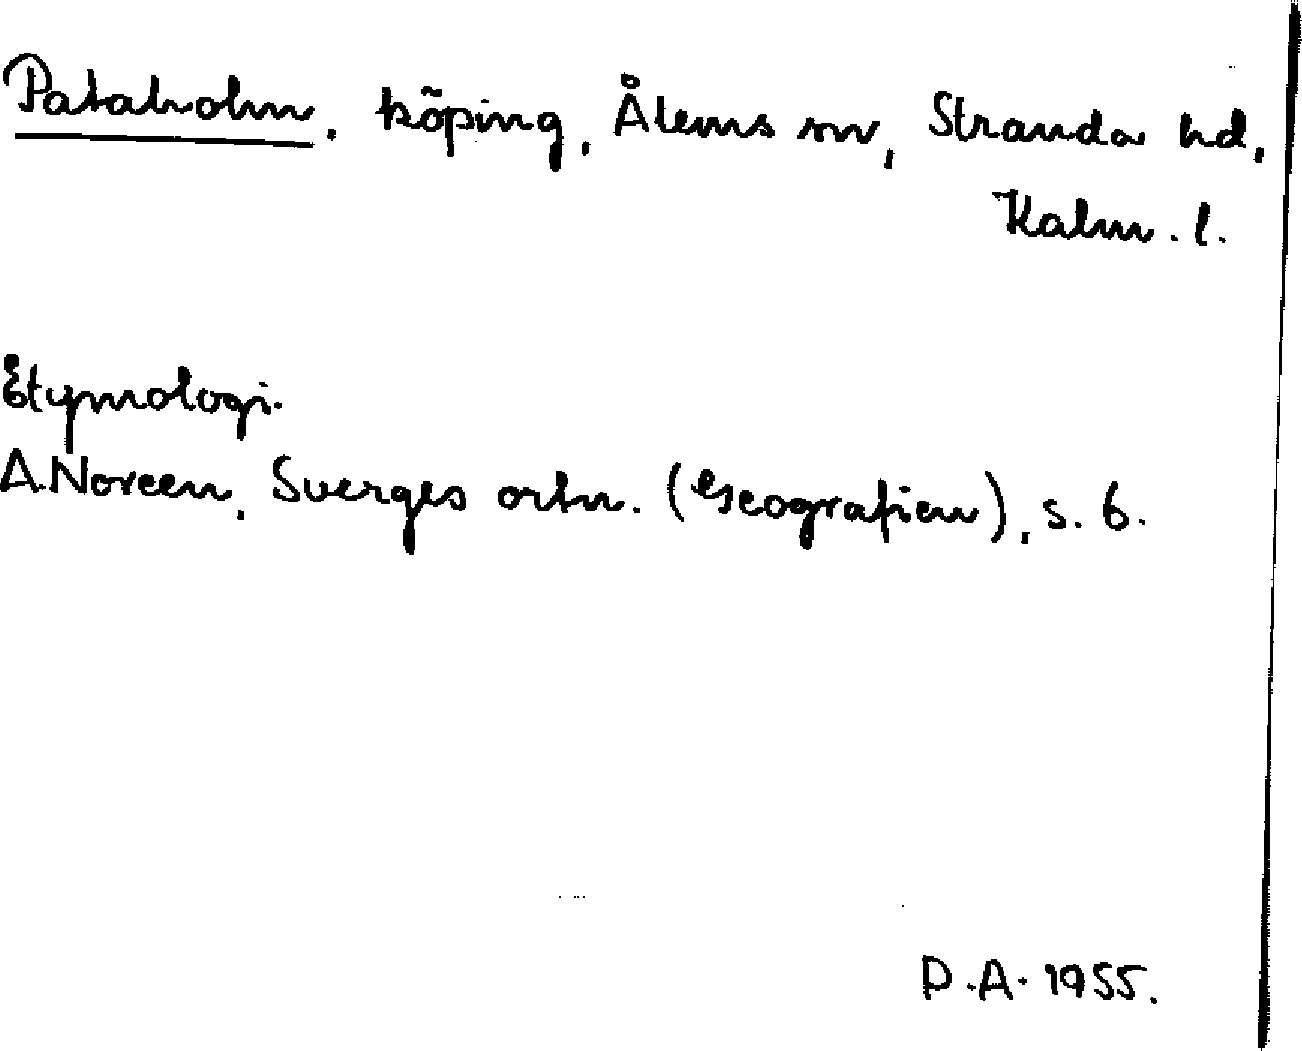 Pataholm, köping, Ålems sn, Stranda hd,
Kalm. l.
Etymologi.
A. Noreen, Sverges ortn. (Geografien), s. 6.
D.A. 1955.